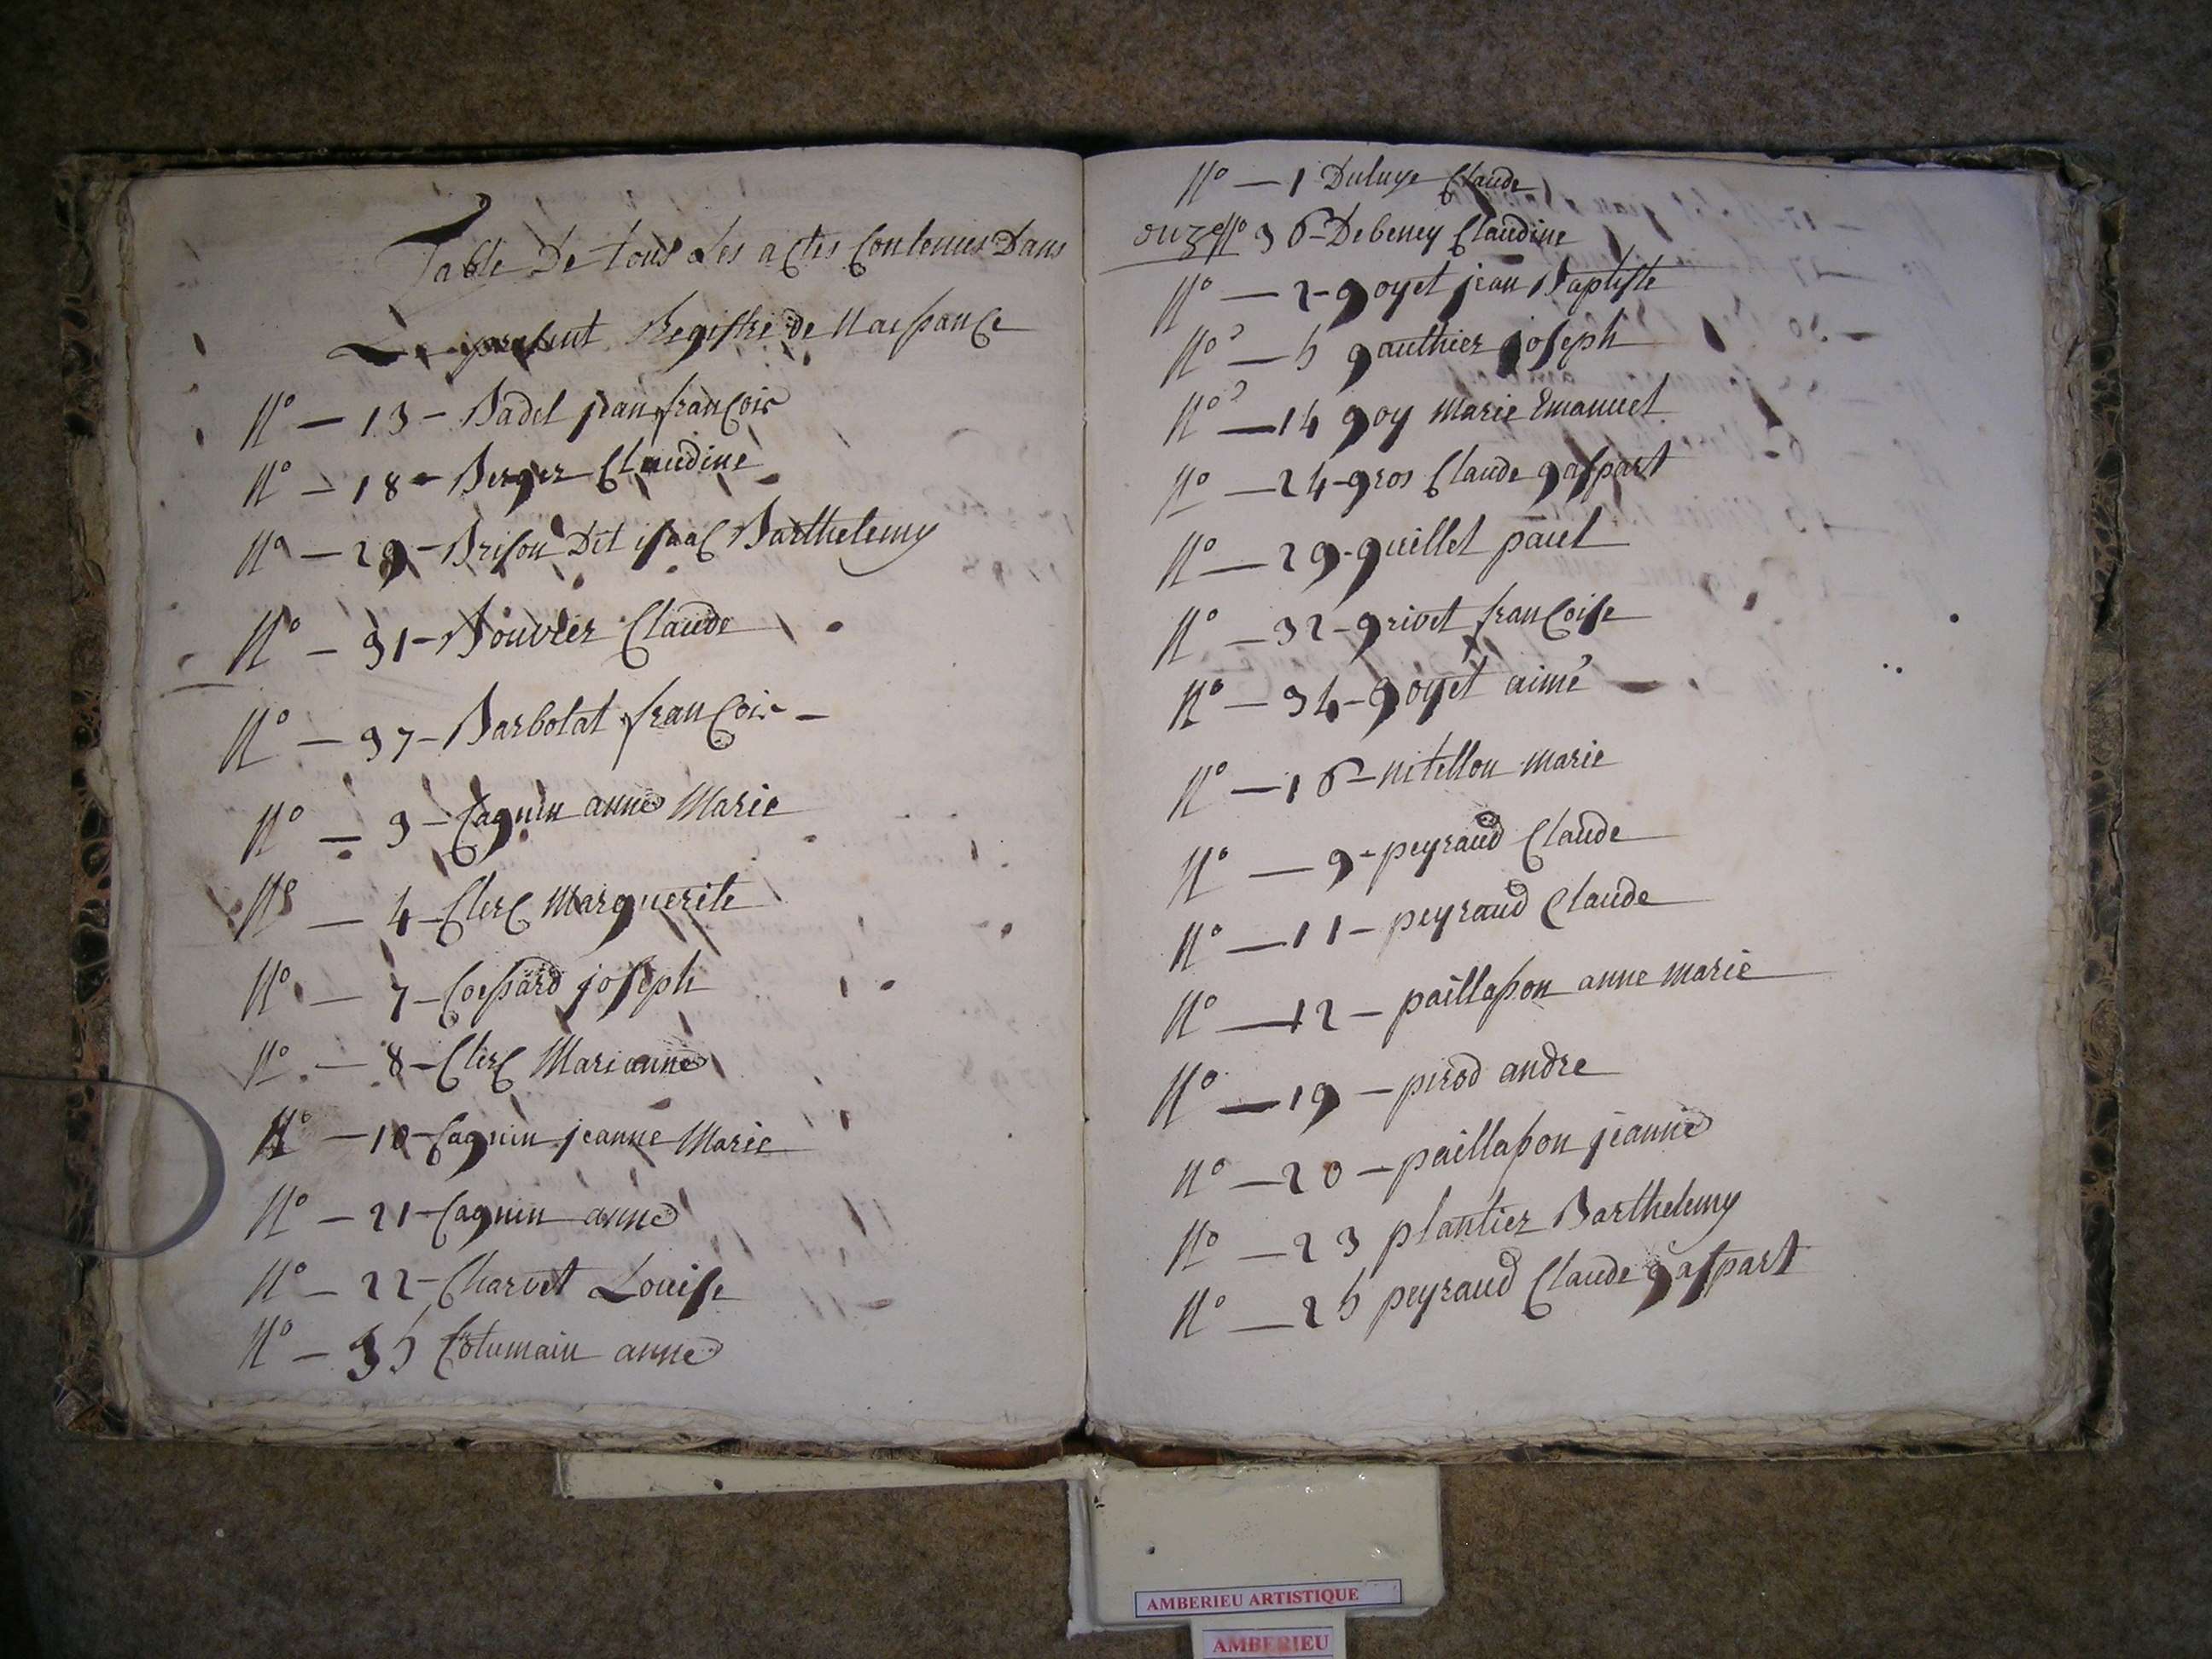 Table De tous Les actes Contenues Dans
Le present Registre de Naissance
N° — 13 — Badel jean françois
N° — 18 — Berger Claudine
N° — 29 — Brison Dit isaac Barthelemy
N° — 31 — Bouvier Claude
N° — 37 — Barbolat françois —
N° — 3 — Cagnin anne Marie
N° — 4 — Clerc Marguerite
N° — 7 — Coessard joseph
N° — 8 — Clerc Marianne
N° — 10 — Cagnin jeanne Marie
N° — 21 — Cagnin anne
N° — 22 — Charvet Louise
N° — 35 Cotumain anne
N° — 1 Duluye Claude
N° 36 — Debeney Claudine
N° — 2 — goyet jean Baptiste
N° — 5 gauthier joseph
N° — 14 goy Marie Emanuel
N° — 24 — gros Claude gaspart
N° — 29 — guillet paul
N° — 32 — grivet françoise
N° — 34 — goyet aimé
N° — 16 — nitellon marie
N° — 9 — peyraud Claude
N° — 11 — peyraud Claude
N° — 12 — paillasson anne marie
N° — 19 — pirod andre
N° — 20 — paillasson jeanne
N° — 23 plantier Barthelemy
N° — 25 peyraud Claude gaspart
AMBERIEU ARTISTIQUE
AMBERIEU